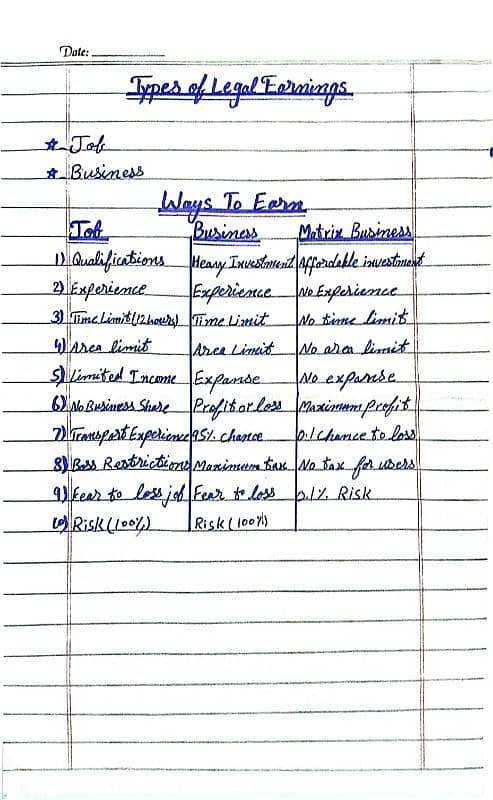 Date:
Types of Legal Earnings
☆ Job
☆ Business
Ways To Earn
Job Business Matrix Business
1) Qualifications Heavy Investment Affordable investment
2) Experience Experience No Experience
3) Time Limit (12 hours) Time Limit No time limit
4) Area limit Area Limit No area limit
5) Limited Income Expanse No expanse
6) No Business Share Profit or loss Maximum profit
7) Transport Experience 95% chance 0.1 Chance to loss
8) Boss Restrictions Maximum tax No tax for users
9) Fear to loss job Fear to loss 0.1% Risk
10) Risk (100%) Risk (100%)